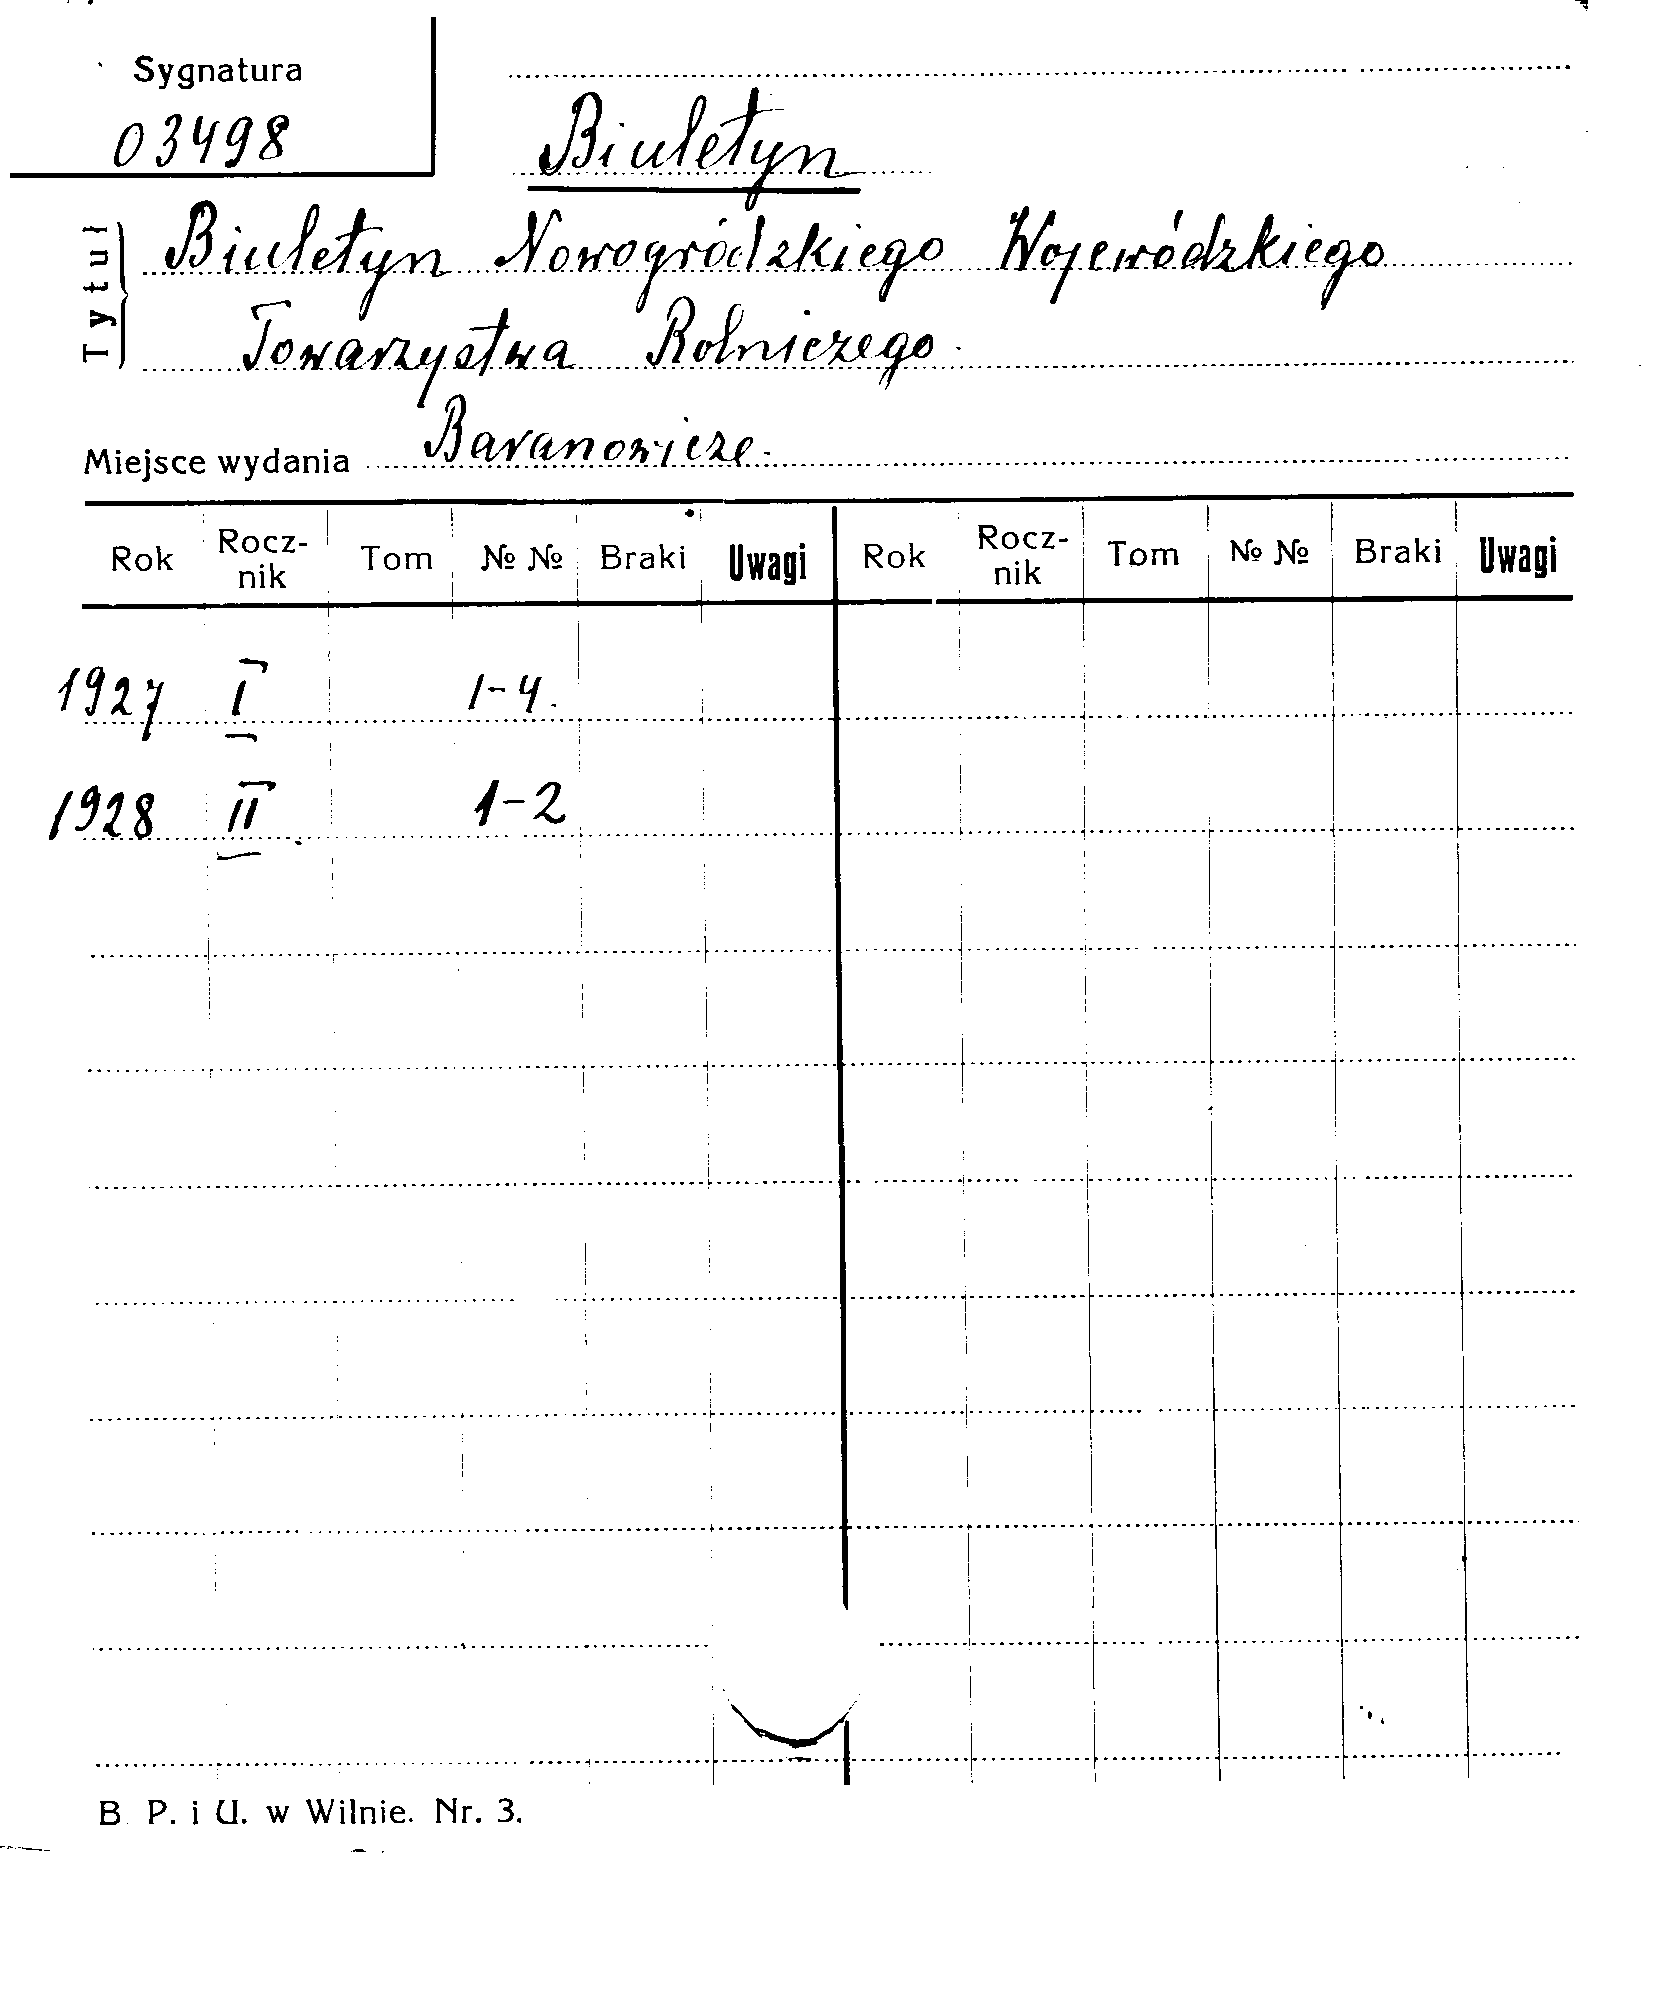 Sygnatura
03498
Biuletyn
Tytuł
Biuletyn Nowogródzkiego Wojewódzkiego
Towarzystwa Rolniczego.
Miejsce wydania Baranowicze.
Rok Rocz-nik Tom № № Braki Uwagi Rok Rocz-nik Tom № № Braki Uwagi
1927 I 1-4.
1928 II 1-2
B. P. i U. w Wilnie. Nr. 3.